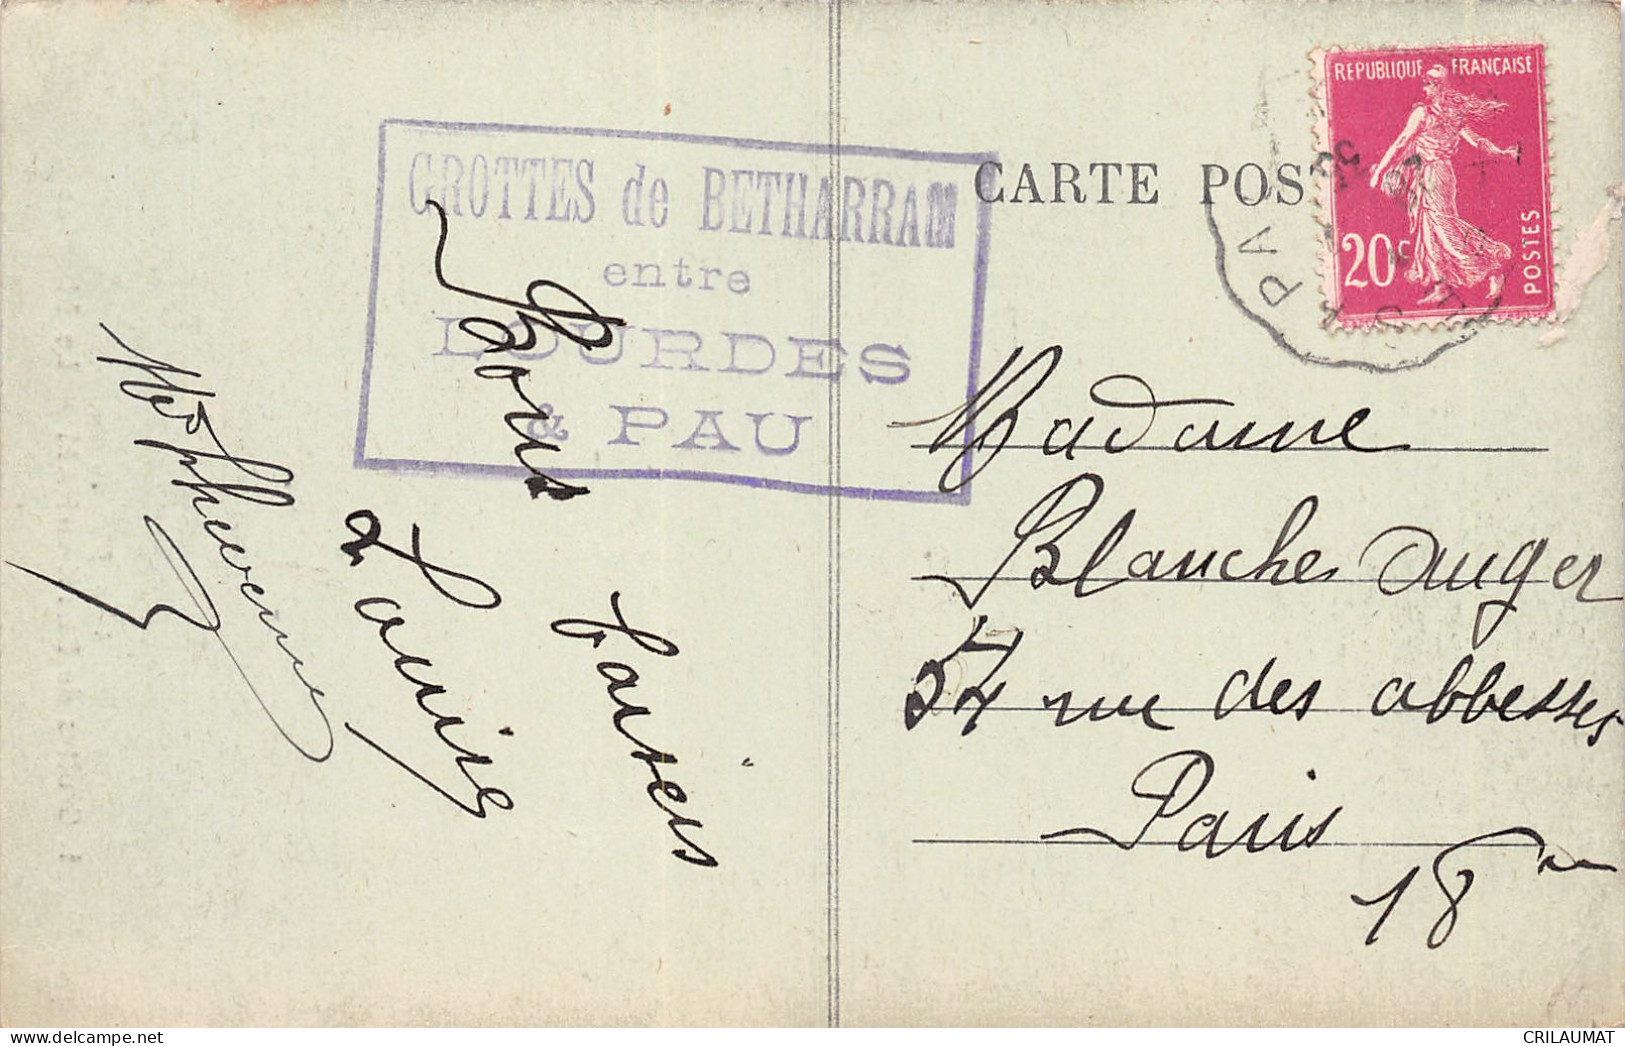 GROTTES de BETHARRAM
entre
LOURDES
& PAU
Bons baisers
Louise
CARTE POS
REPUBLIQUE FRANÇAISE
20c
POSTES
PA
Madame
Blanche Auger
54 rue des abbesses
Paris
18
www.delcampe.net
CRILAUMAT